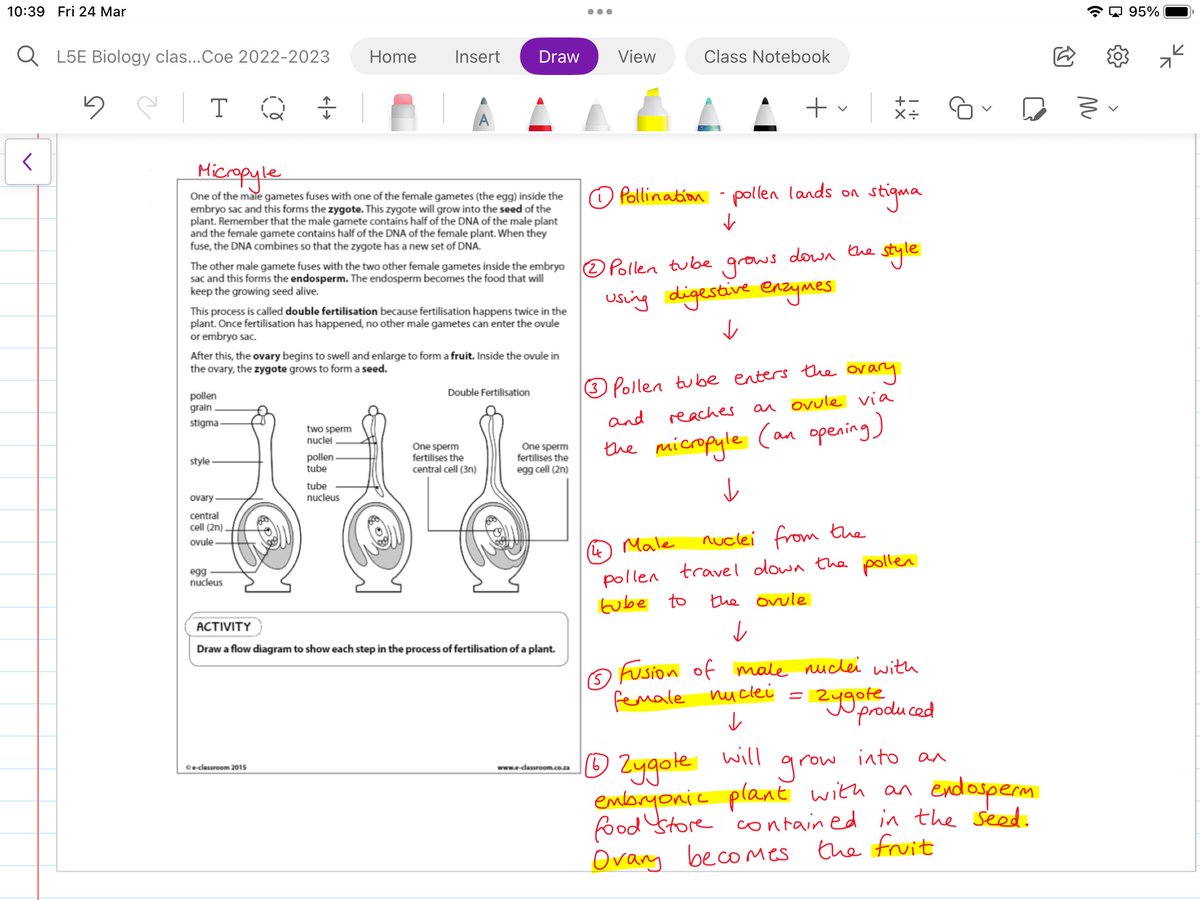 10:39 Fri 24 Mar
95%
L5E Biology clas...Coe 2022-2023
Home
Insert
Draw
View
Class Notebook
T
A
Micropyle
One of the male gametes fuses with one of the female gametes (the egg) inside the
embryo sac and this forms the zygote. This zygote will grow into the seed of the
plant. Remember that the male gamete contains half of the DNA of the male plant
and the female gamete contains half of the DNA of the female plant. When they
fuse, the DNA combines so that the zygote has a new set of DNA.
The other male gamete fuses with the two other female gametes inside the embryo
sac and this forms the endosperm. The endosperm becomes the food that will
keep the growing seed alive.
This process is called double fertilisation because fertilisation happens twice in the
plant. Once fertilisation has happened, no other male gametes can enter the ovule
or embryo sac.
After this, the ovary begins to swell and enlarge to form a fruit. Inside the ovule in
the ovary, the zygote grows to form a seed.
pollen
grain
stigma
style
ovary
central
cell (2n)
ovule
egg
nucleus
two sperm
nuclei
pollen
tube
tube
nucleus
Double Fertilisation
One sperm
fertilises the
central cell (3n)
One sperm
fertilises the
egg cell (2n)
ACTIVITY
Draw a flow diagram to show each step in the process of fertilisation of a plant.
© e-classroom 2015
www.e-classroom.co.za
① Pollination - pollen lands on stigma
↓
② Pollen tube grows down the style
using digestive enzymes
↓
③ Pollen tube enters the ovary
and reaches an ovule via
the micropyle (an opening)
↓
④ Male nuclei from the
pollen travel down the pollen
tube to the ovule
↓
⑤ Fusion of male nuclei with
female nuclei = zygote
produced
↓
⑥ Zygote will grow into an
embryonic plant with an endosperm
food store contained in the seed.
Ovary becomes the fruit